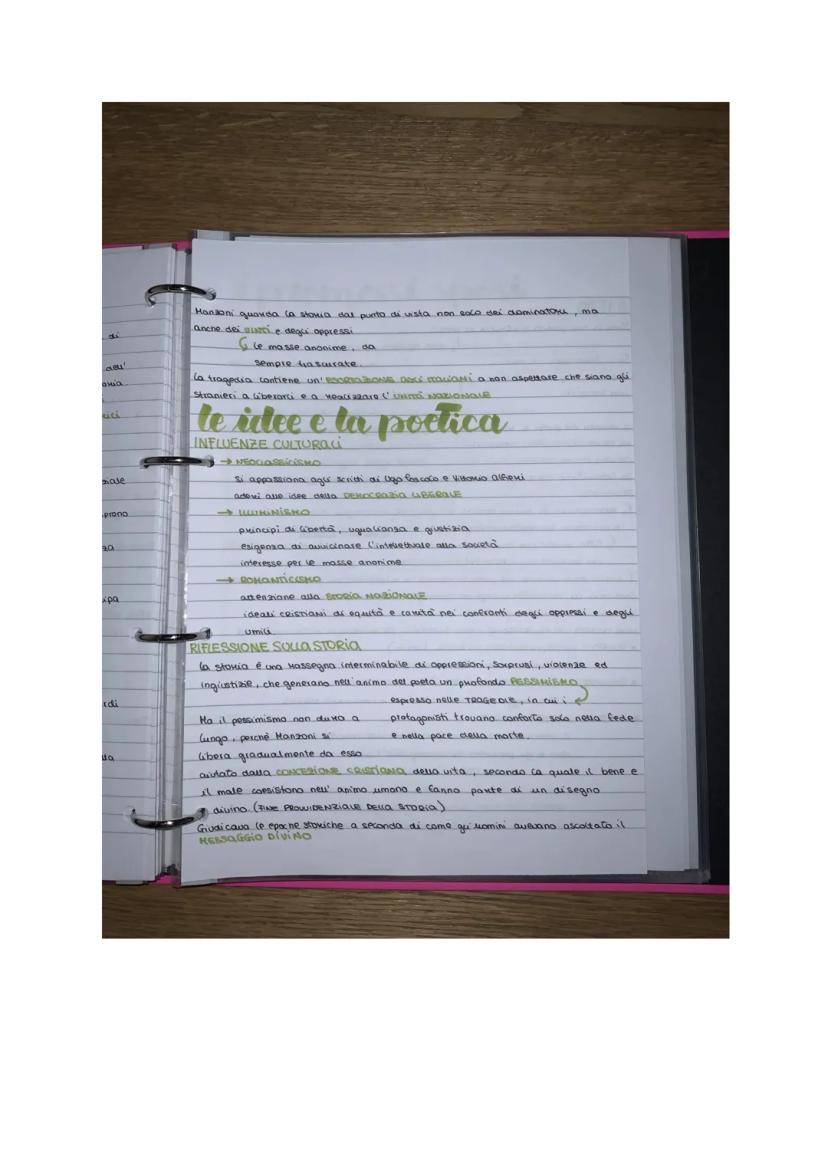 Manzoni guarda la storia dal punto di vista non solo dei dominatori, ma
anche dei VINTI e degli oppressi
le masse anonime, da
sempre trascurate.
La tragedia contiene un' ESORTAZIONE AGLI ITALIANI a non aspettare che siano gli
stranieri a liberarci e a realizzare l' UNITÀ NAZIONALE
le idee e la poetica
INFLUENZE CULTURALI
→ NEOCLASSICISMO
si appassiona agli scritti di Ugo Foscolo e Vittorio Alfieri
aderì alle idee della DEMOCRAZIA LIBERALE
→ ILLUMINISMO
principi di libertà, uguaglianza e giustizia
esigenza di avvicinare l'intellettuale alla società
interesse per le masse anonime
→ ROMANTICISMO
attenzione alla STORIA NAZIONALE
ideali cristiani di equità e carità nei confronti degli oppressi e degli
umili
RIFLESSIONE SULLA STORIA
La storia è una rassegna interminabile di oppressioni, soprusi, violenze ed
ingiustizie, che generano nell'animo del poeta un profondo PESSIMISMO
espresso nelle TRAGEDIE, in cui i
protagonisti trovano conforto solo nella fede
e nella pace della morte.
Ma il pessimismo non dura a
lungo, perché Manzoni si
libera gradualmente da esso
aiutato dalla CONCEZIONE CRISTIANA della vita, secondo la quale il bene e
il male coesistono nell' animo umano e fanno parte di un disegno
divino. (FINE PROVVIDENZIALE DELLA STORIA)
Giudicava le epoche storiche a seconda di come gli uomini avevano ascoltato il
MESSAGGIO DIVINO